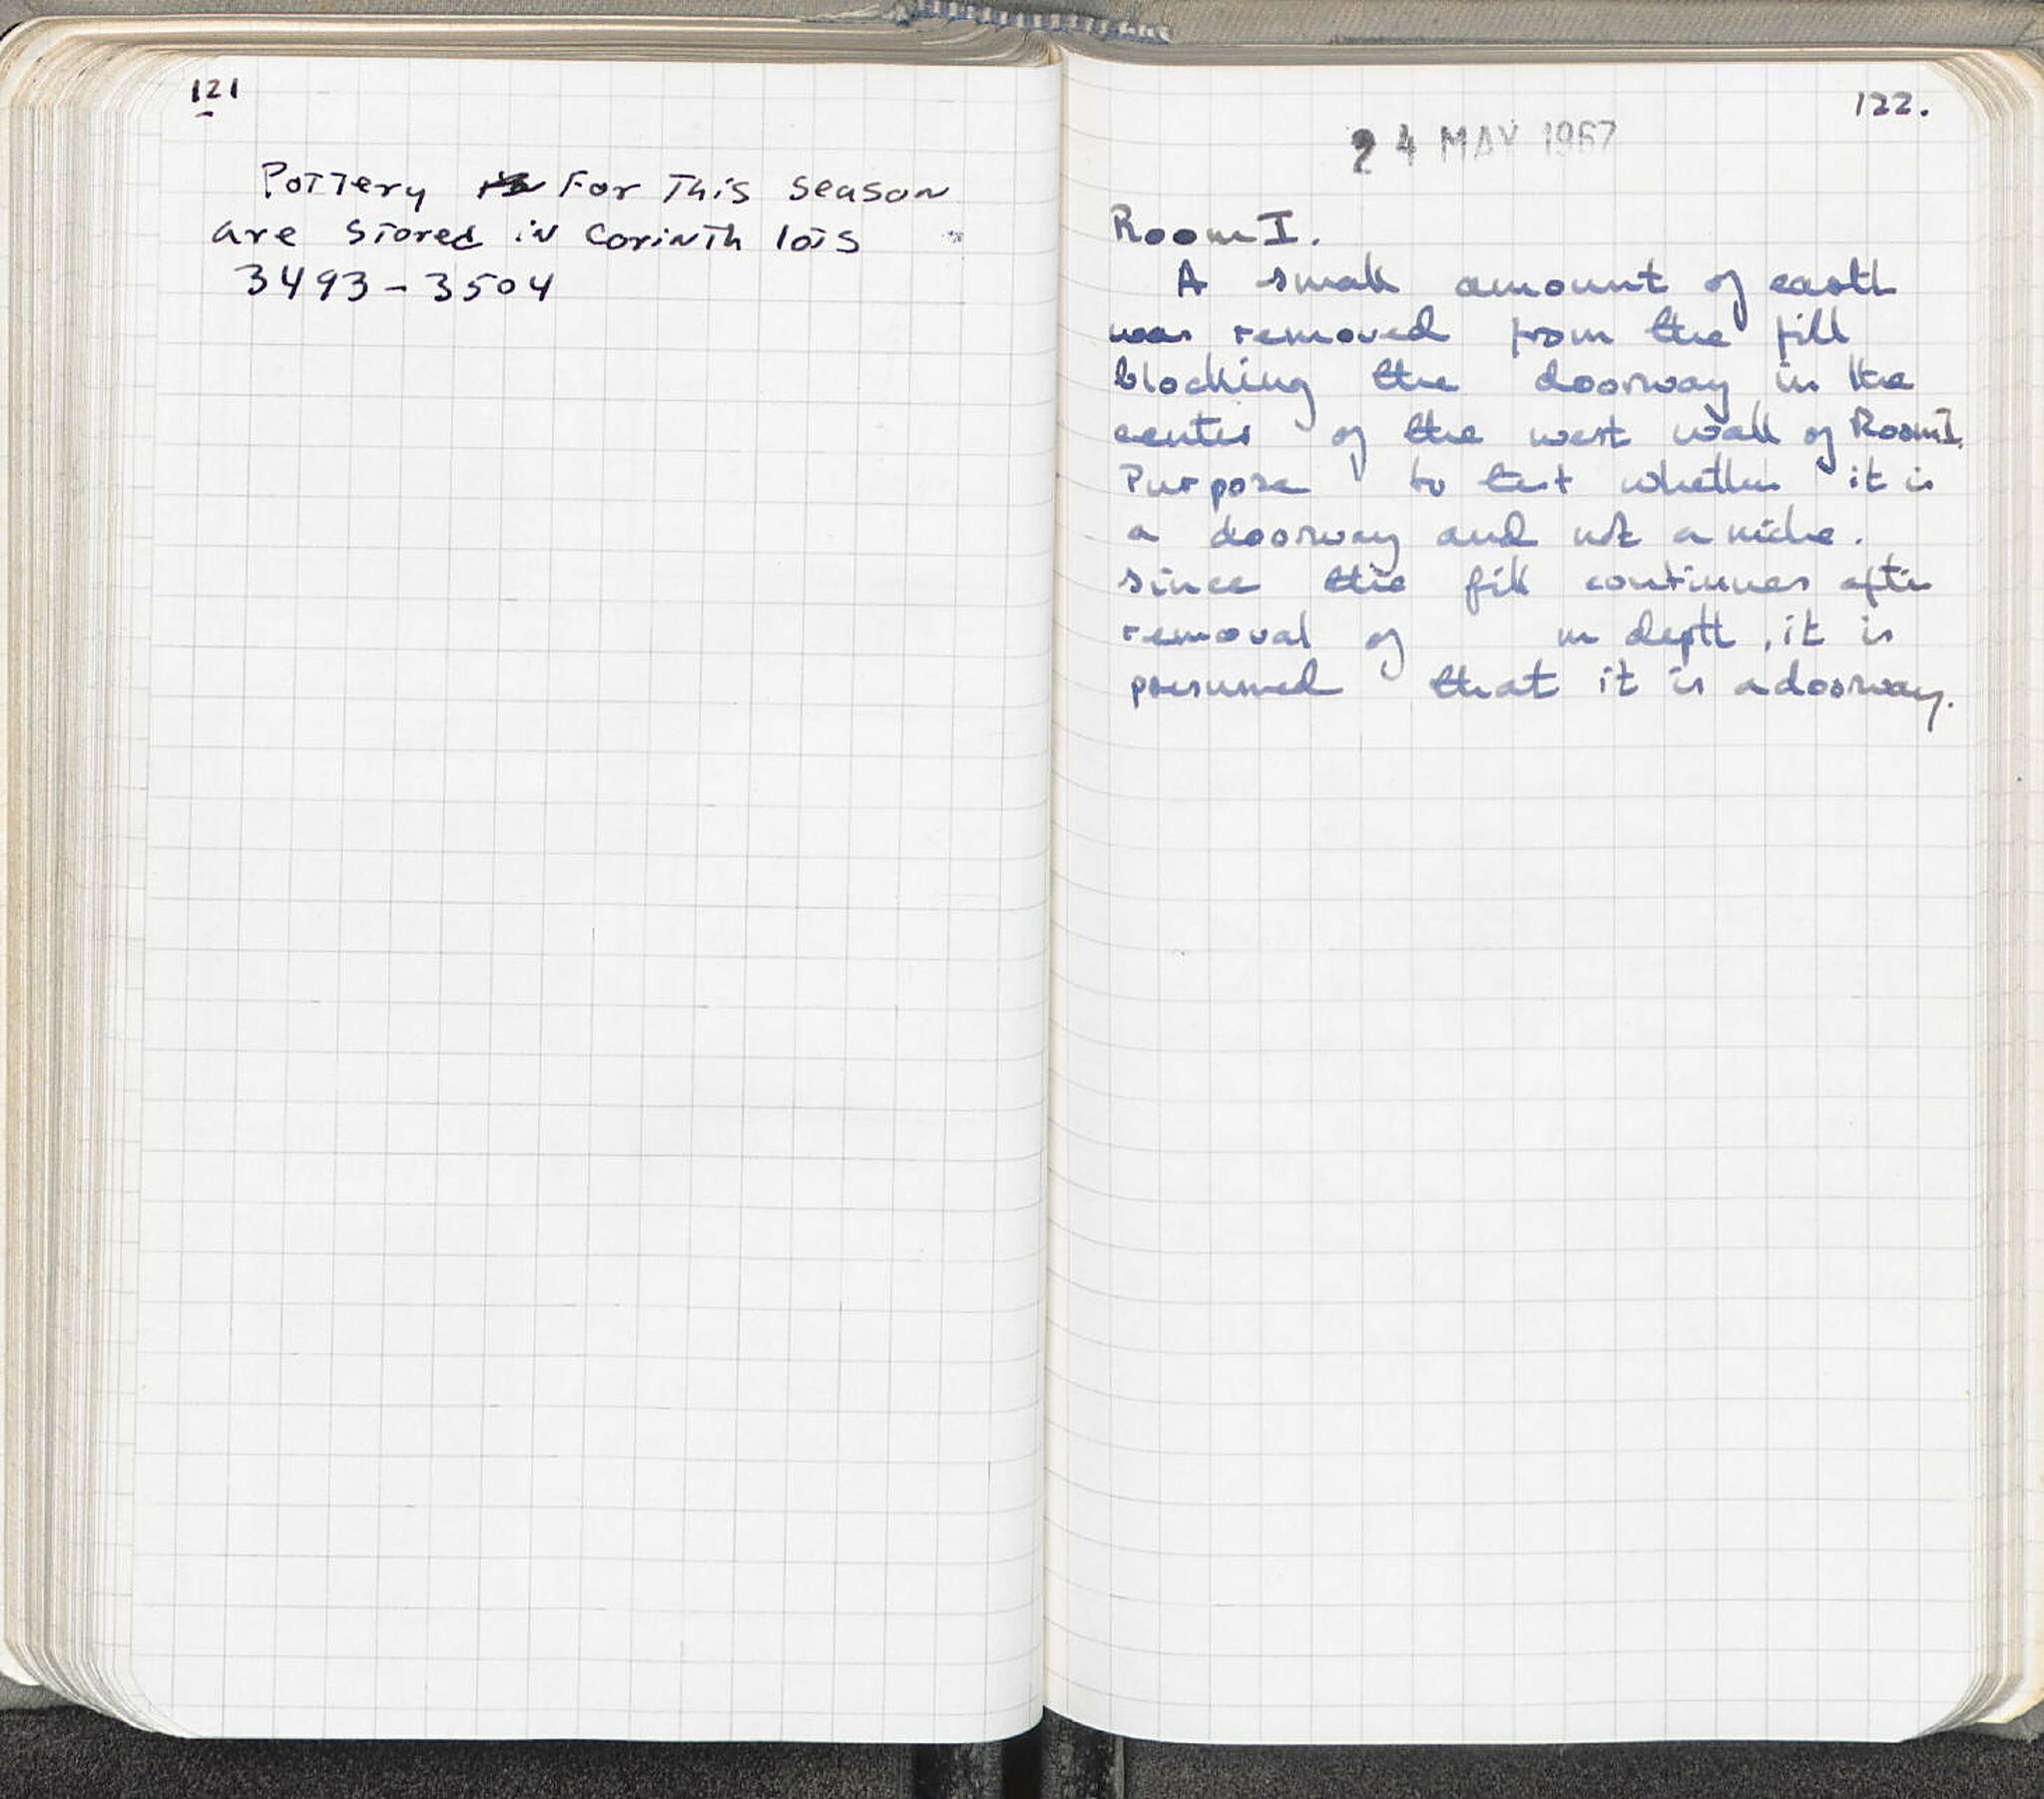 121
Pottery for This season
are stored in Corinth lots
3493-3504
122.
24 MAY 1967
Room I.
A small amount of earth
was removed from the fill
blocking the doorway in the
center of the west wall of Room I.
Purpose to test whether it is
a doorway and not a niche.
since the fill continues after
removal of m depth, it is
presumed that it is a doorway.